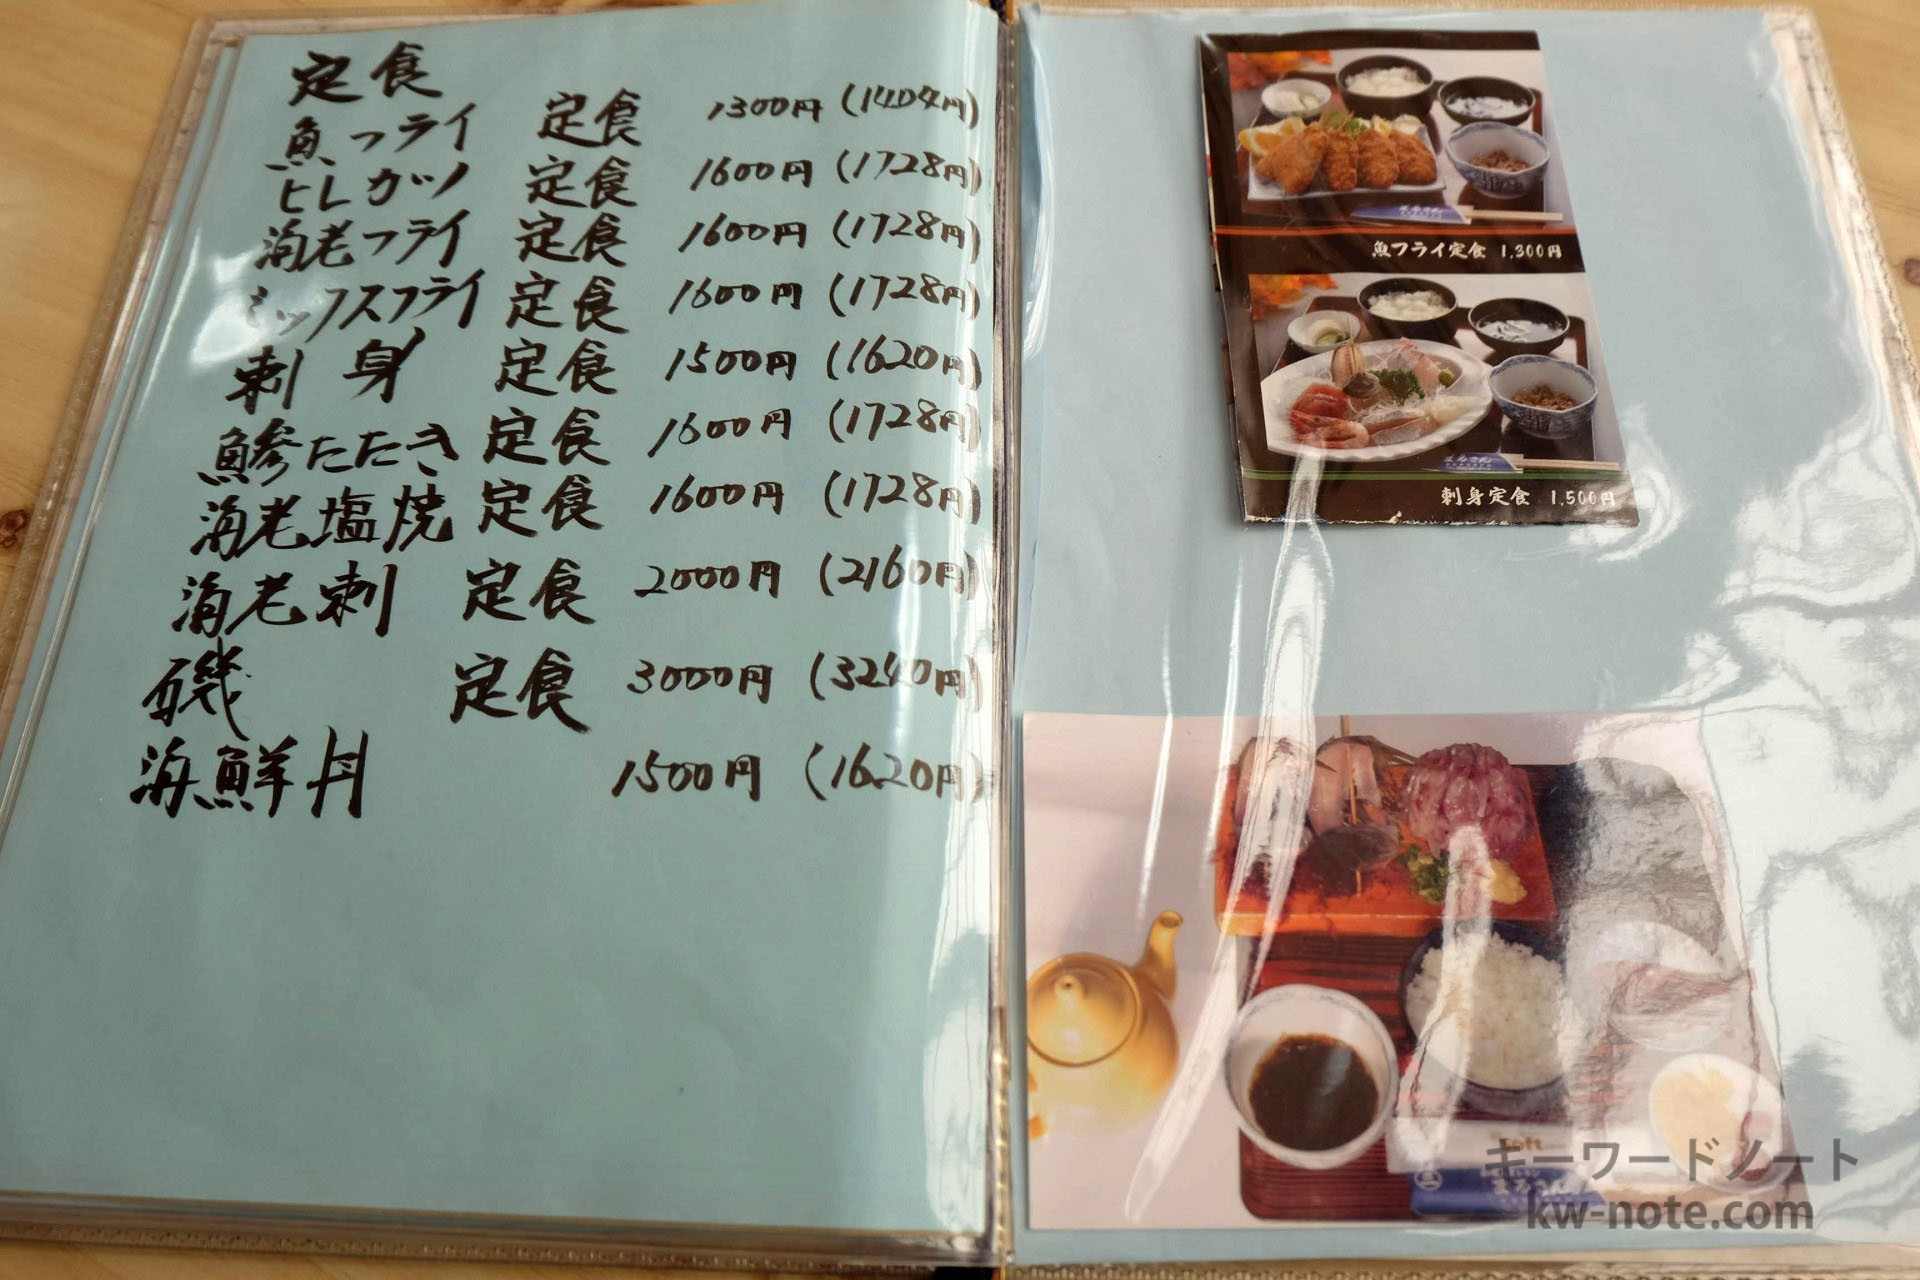 定食
魚フライ 定食 1300円 (1404円)
ヒレカツ 定食 1600円 (1728円)
海老フライ 定食 1600円 (1728円)
ミックスフライ 定食 1600円 (1728円)
刺身 定食 1500円 (1620円)
鯵たたき 定食 1600円 (1728円)
海老塩焼 定食 1600円 (1728円)
海老刺 定食 2000円 (2160円)
磯 定食 3000円 (3240円)
海鮮丼 1500円 (1620円)
まるさん
魚フライ定食 1,300円
まるさん
刺身定食 1,500円
まるさん
キーワードノート
kw-note.com